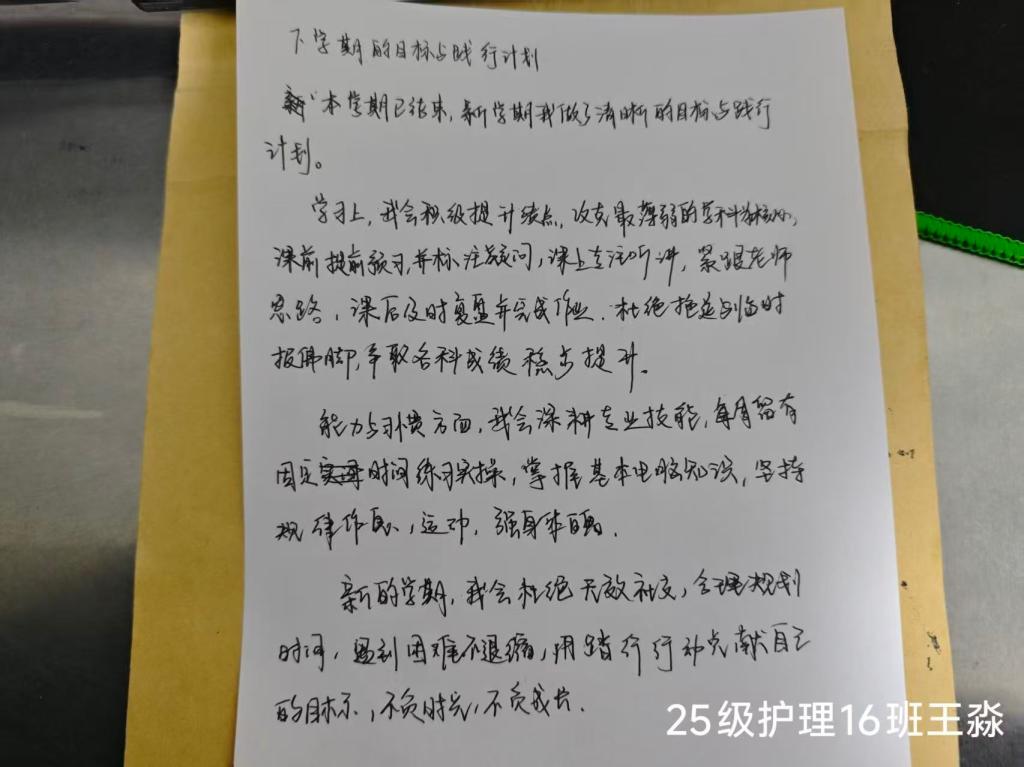 下学期的目标与践行计划
本学期已结束,新学期我做了清晰的目标与践行
计划。
学习上,我会积极提升绩点,攻克最薄弱的学科
课前提前预习,并标注疑问,课上专注听讲,紧跟老师
思路,课后及时复盘并完成作业.杜绝拖延与临时
报佛脚,争取各科成绩稳步提升。
能力与习惯方面,我会深耕专业技能,每周留有
固定时间练习实操,掌握基本电脑知识,坚持
规律作息,运动,强身
新的学期,我会杜绝无效社交,合理规划
时间,遇到困难不退缩,用踏行行动兑献自己
的目标,不负时光,不负成长.
25级护理16班王淼